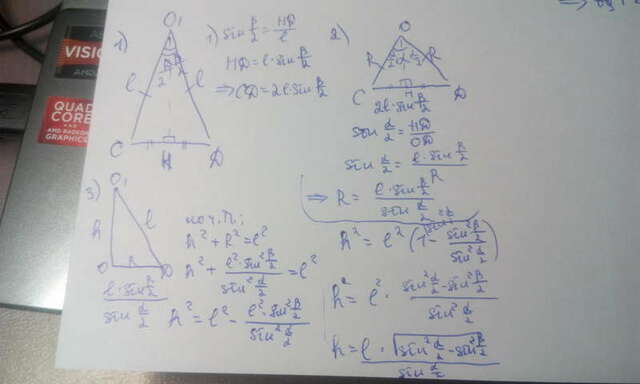 AMD
VISION
AMD
QUAD
CORE
AMD RADEON
GRAPHICS
1)
O₁
β/2
l
l
C
H
D
1) sin β/2 = HD/l
HD = l·sin β/2
⇒ CD = 2l·sin β/2
2)
O
R
α/2
α/2
R
C
H
D
2l·sin β/2
sin α/2 = HD/OD
sin α/2 = l·sin β/2 / R
⇒ R = l·sin β/2 / sin α/2
3)
O₁
h
l
O
R
D
l·sin β/2 / sin α/2
по т.П.:
h² + R² = l²
h² + l²·sin² β/2 / sin² α/2 = l²
h² = l² - l²·sin² β/2 / sin² α/2
h² = l² (1 - sin² β/2 / sin² α/2)
h² = l² · (sin² α/2 - sin² β/2) / sin² α/2
h = l·√(sin² α/2 - sin² β/2) / sin α/2